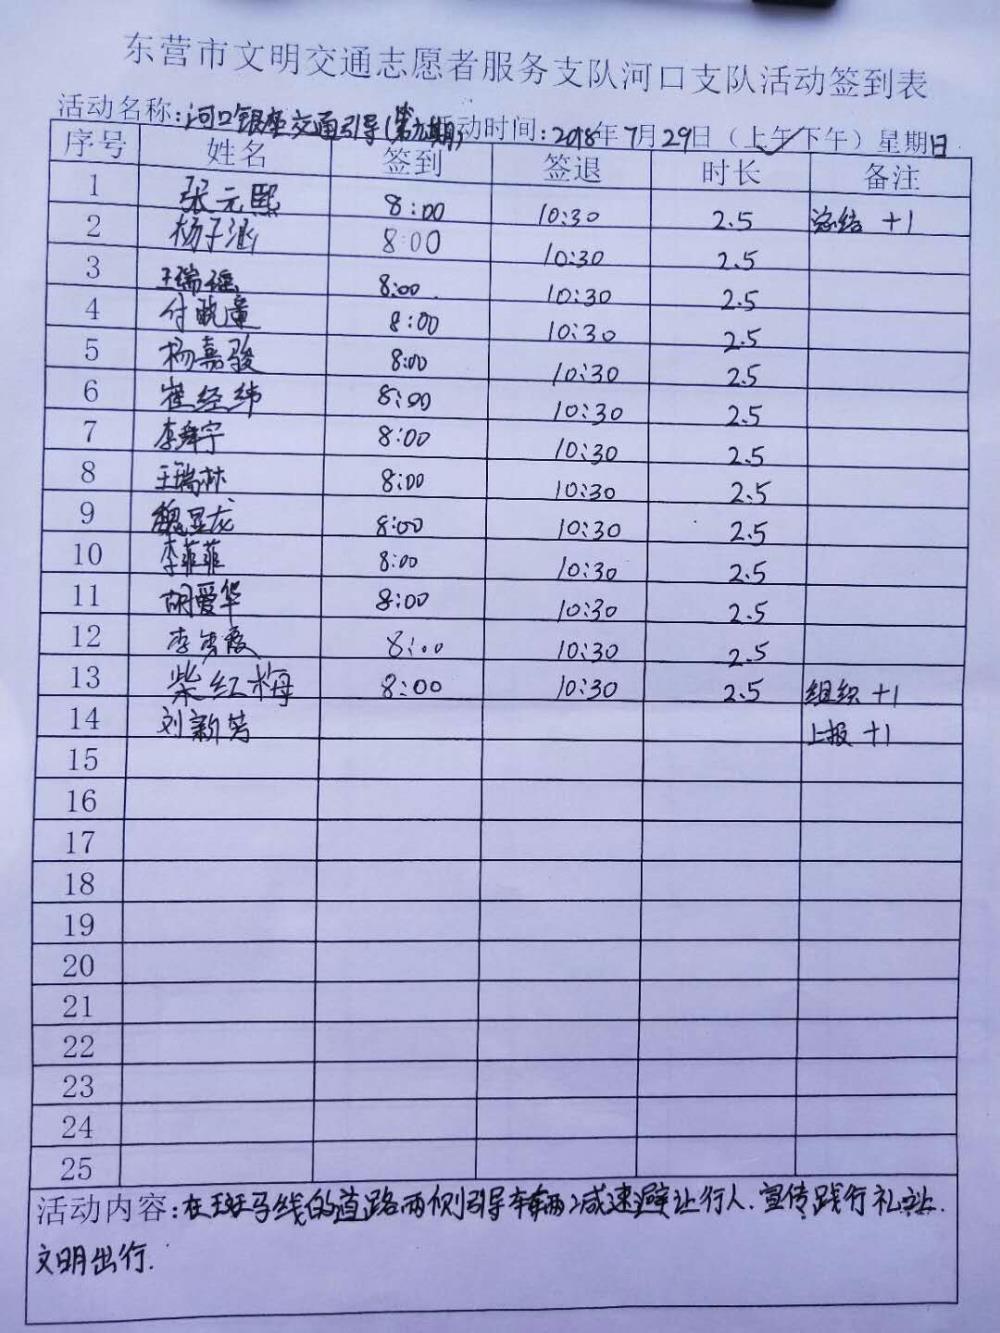 东营市文明交通志愿者服务支队河口支队活动签到表
活动名称:河口银座交通引导(第九期)活动时间:2018年7月29日（上午/下午）星期日
序号 姓名 签到 签退 时长 备注
1 张元熙 8:00 10:30 2.5 总结 +1
2 杨子涵 8:00 10:30 2.5
3 王瑞瑶 8:00 10:30 2.5
4 付晓童 8:00 10:30 2.5
5 杨嘉骏 8:00 10:30 2.5
6 崔经纬 8:00 10:30 2.5
7 李舜宇 8:00 10:30 2.5
8 王瑞林 8:00 10:30 2.5
9 魏昱龙 8:00 10:30 2.5
10 李菲菲 8:00 10:30 2.5
11 胡爱华 8:00 10:30 2.5
12 李秀霞 8:00 10:30 2.5
13 柴红梅 8:00 10:30 2.5 组织 +1
14 刘新芳 上报 +1
15
16
17
18
19
20
21
22
23
24
25
活动内容:在斑马线的道路两侧引导车辆减速避让行人.宣传践行礼让.
文明出行.